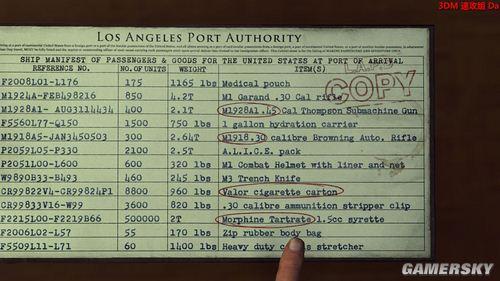 3DM 速攻組 Da
LOS ANGELES PORT AUTHORITY
SHIP MANIFEST OF PASSENGERS & GOODS FOR THE UNITED STATES AT PORT OF ARRIVAL
REFERENCE NO. NO. OF UNITS WEIGHT ITEM(S)
COPY
F2008L01-L176 175 1165 lbs Medical pouch
M1924A-FEB498216 850 4.2T M1 Garand .30 Cal rifle
M1928A1- AUG3114434 400 2.1T M1928A1.45 Cal Thompson Submachine Gun
F5560L77-Q150 1500 750 lbs 1 gallon hydration carrier
M1918A5-JAN3450503 300 2.64T M1918.30 calibre Browning Auto. Rifle
P2059L05-P330 2100 2.5T A.L.I.C.E. pack
P2051L00-L600 600 320 lbs M1 Combat Helmet with liner and net
W9809B33-B493 460 245 lbs M3 Trench Knife
CR99822V4-CR99824P1 8800 960 lbs Valor cigarette carton
CR99833V16-W99 3600 820 lbs .30 calibre ammunition stripper clip
F2215L00-F2219B66 500000 2T Morphine Tartrate 1.5cc syrette
F2006L02-L57 55 170 lbs Zip rubber body bag
F5509L11-L71 60 1400 lbs Heavy duty stretcher
GAMERSKY